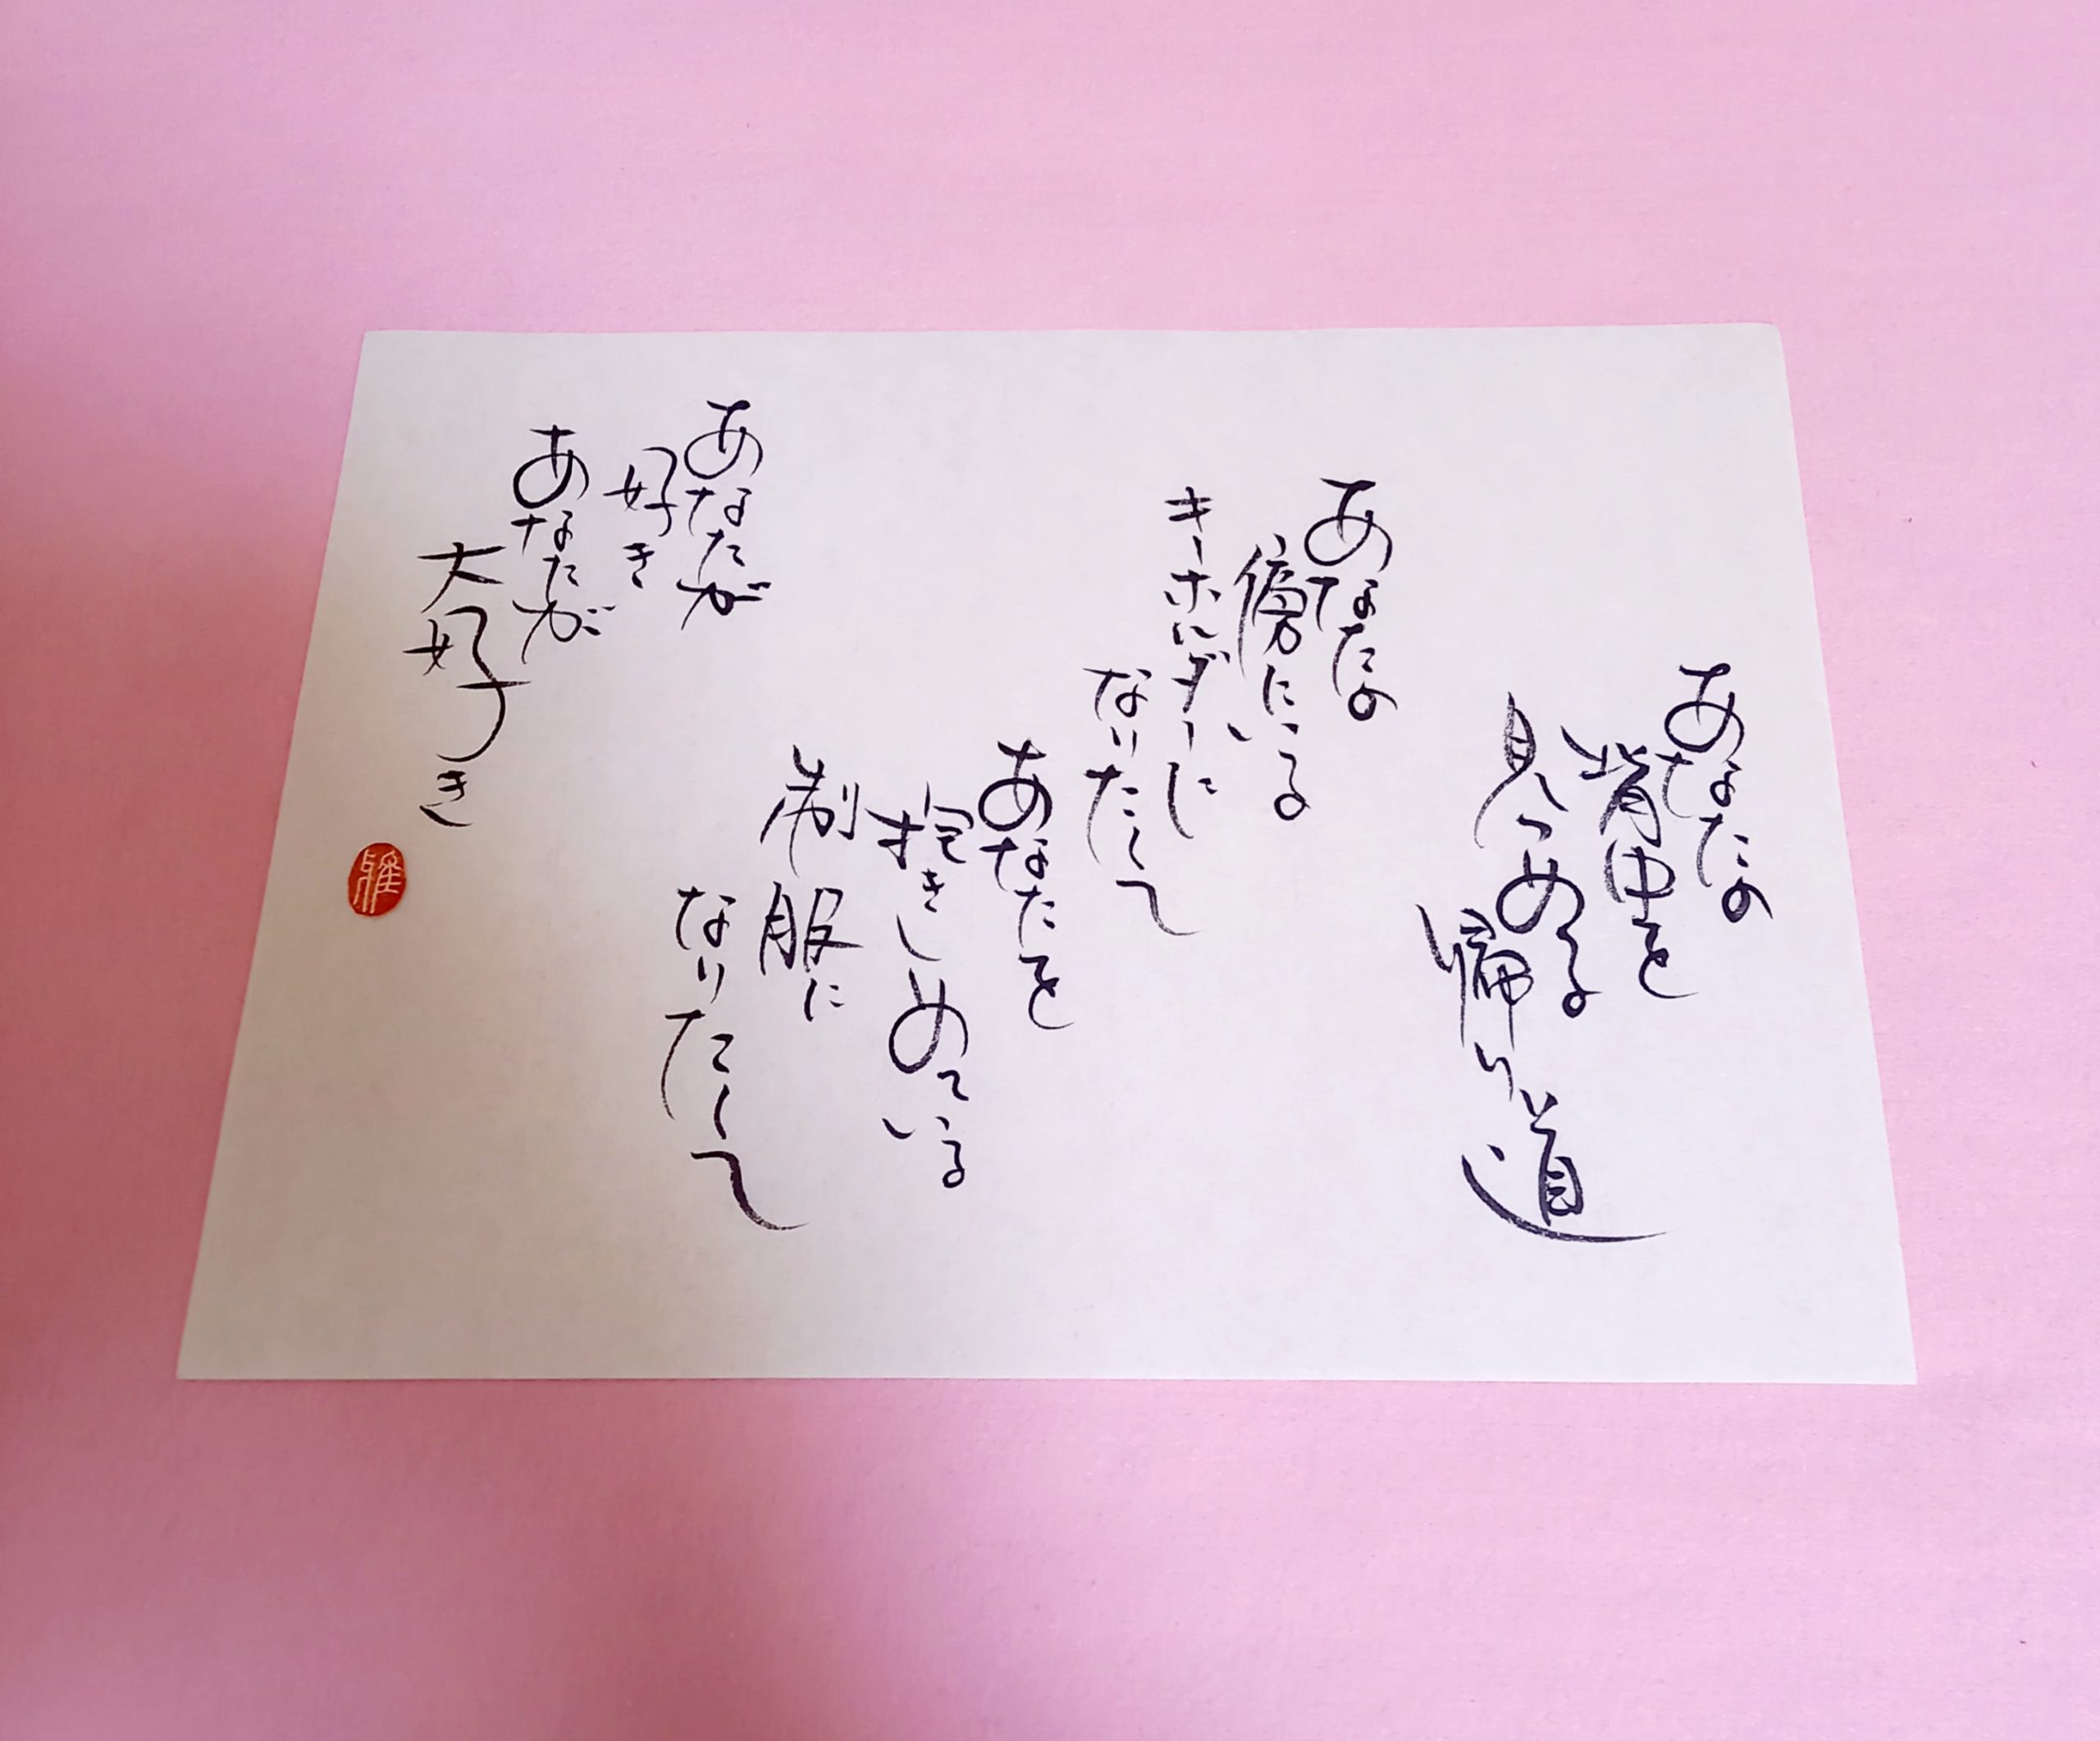 あなたの
背中を
見つめる
帰り道
あなたの
傍にいる
キーホルダーに
なりたくて
あなたを
抱きしめている
制服に
なりたくて
あなたが
好き
あなたが
大好き
雅